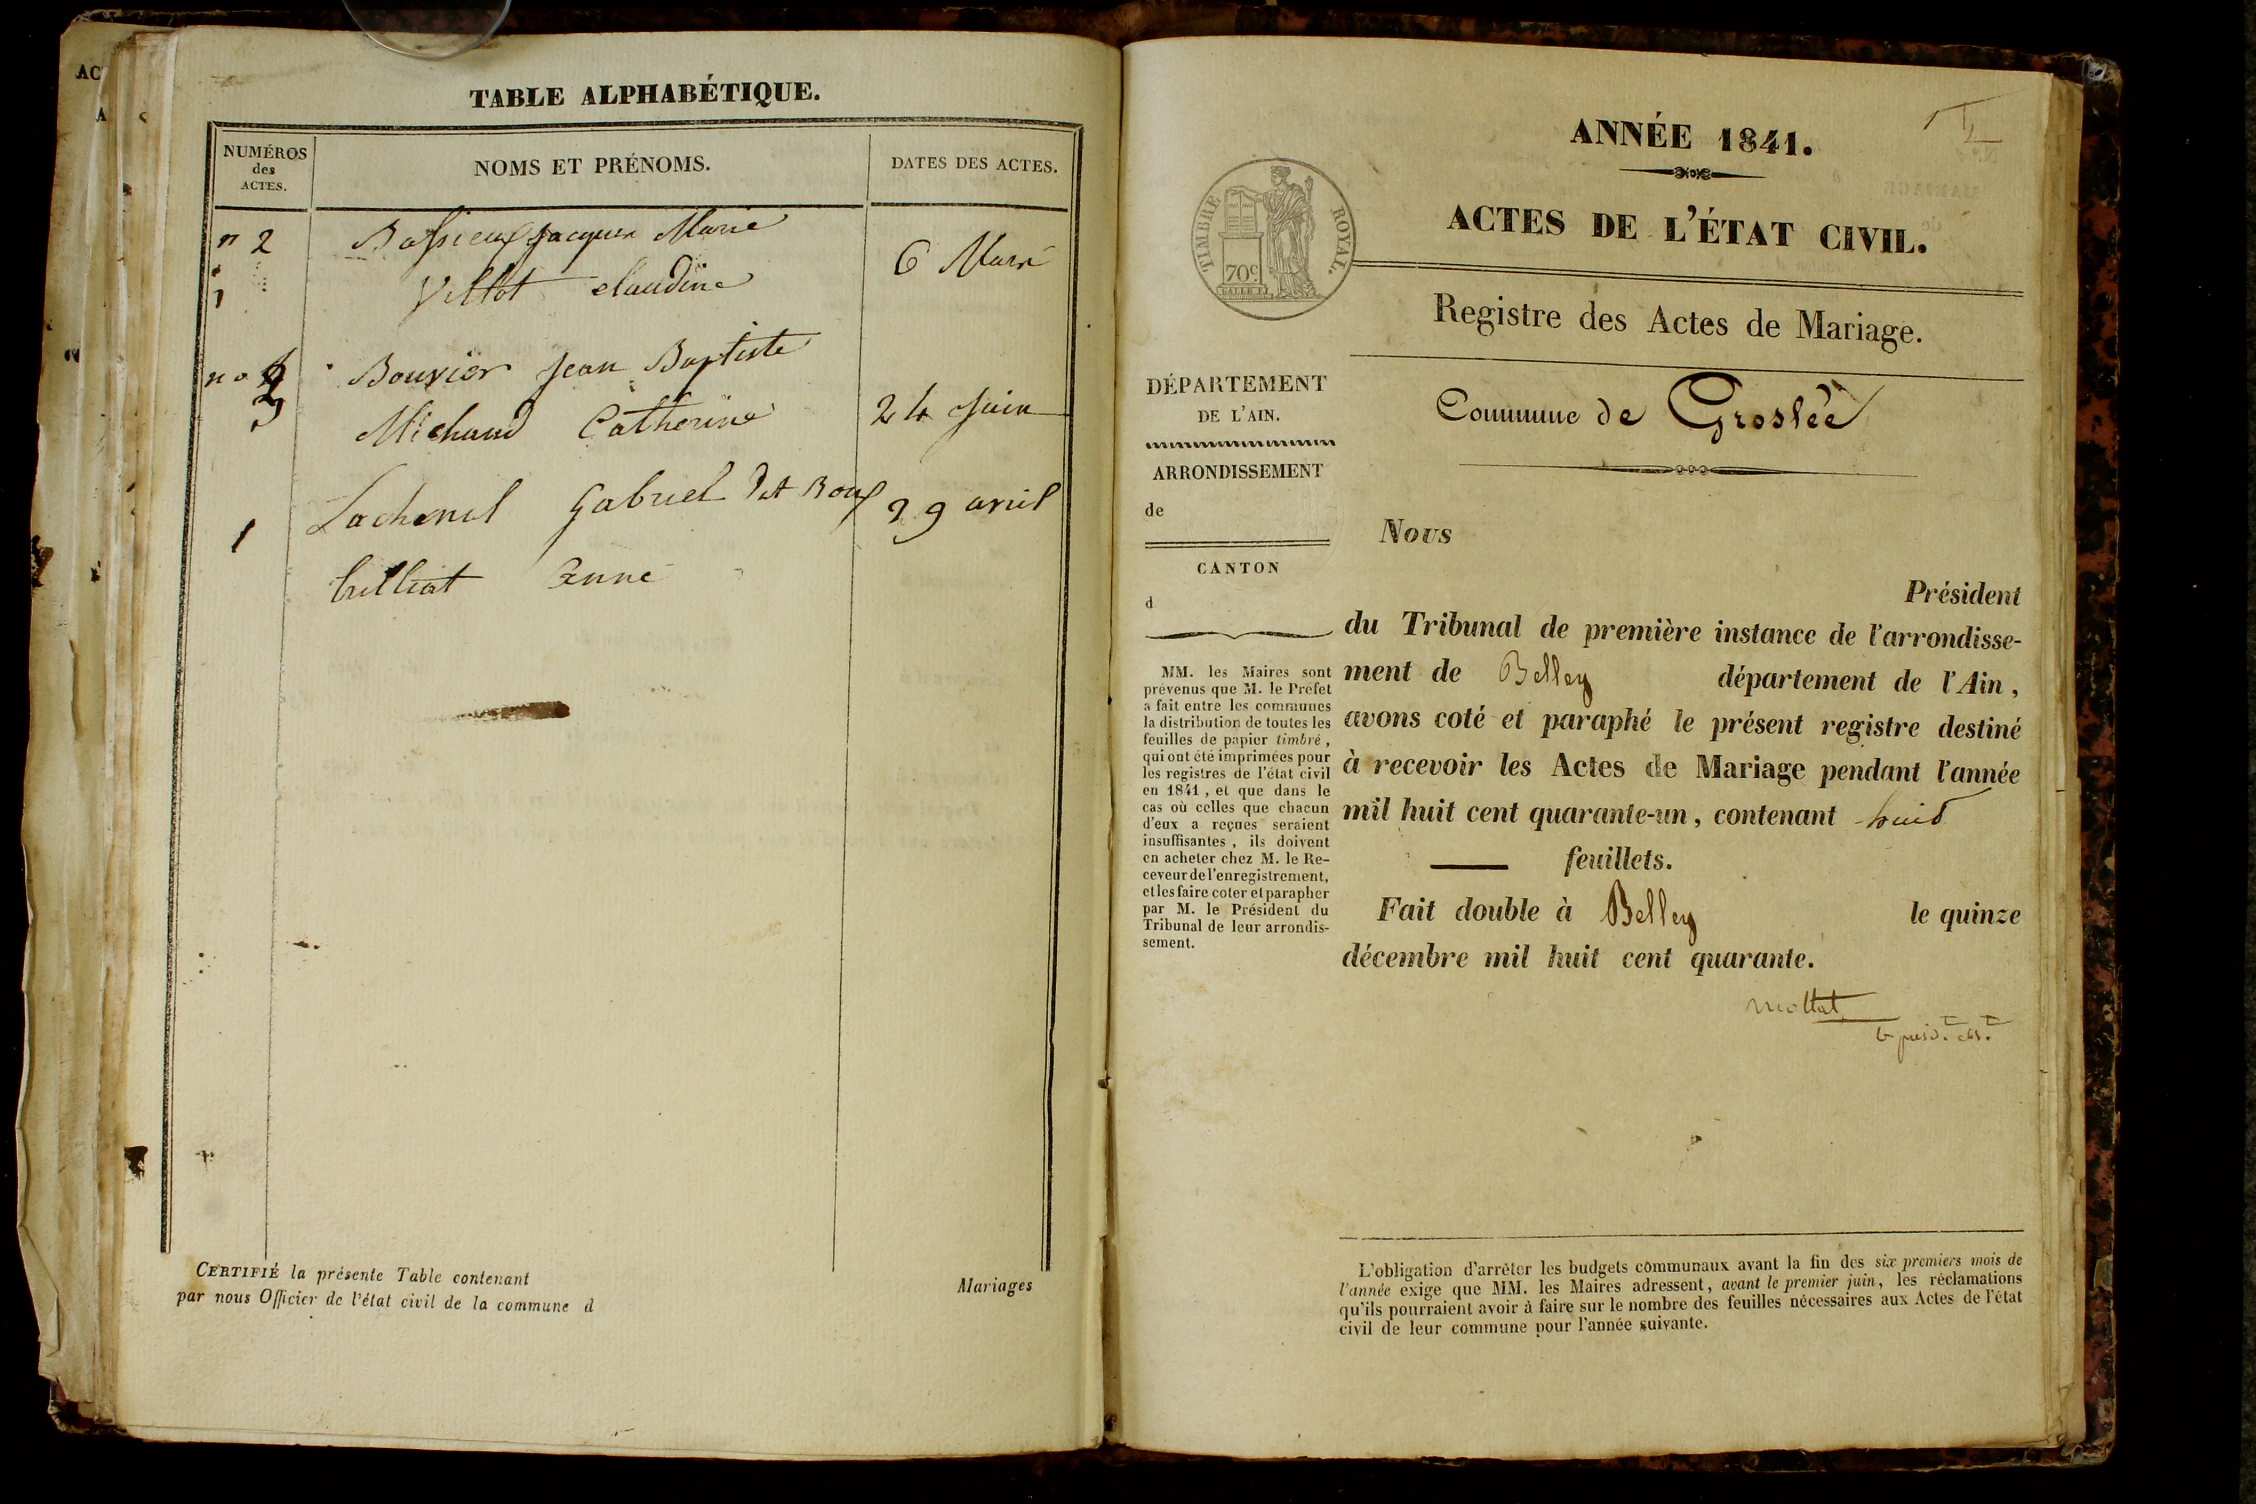 AC
A
TABLE ALPHABÉTIQUE.
NUMÉROS
des
ACTES.
NOMS ET PRÉNOMS.
DATES DES ACTES.
n 2
Bassieux Jacques Marie
6 Mars
Claudine
no 3
Bouvier Jean Baptiste
Michaud Catherine
24 Juin
1
Lachenel Gabriel dit Roux
29 avril
Trilliat Anne
CERTIFIÉ la présente Table contenant
Mariages
par nous Officier de l'état civil de la commune d
ANNÉE 1841.
ACTES DE L'ÉTAT CIVIL.
TIMBRE ROYAL.
70c
Registre des Actes de Mariage.
Commune de Groslée
DÉPARTEMENT
DE L'AIN.
ARRONDISSEMENT
de
CANTON
d
MM. les Maires sont
prévenus que M. le Préfet
a fait entre les communes
la distribution de toutes les
feuilles de papier timbré,
qui ont été imprimées pour
les registres de l'état civil
en 1841, et que dans le
cas où celles que chacun
d'eux a reçues seraient
insuffisantes, ils doivent
en acheter chez M. le Re-
ceveur de l'enregistrement,
et les faire coter et parapher
par M. le Président du
Tribunal de leur arrondis-
sement.
Nous
Président
du Tribunal de première instance de l'arrondisse-
ment de Belley département de l'Ain,
avons coté et paraphé le présent registre destiné
à recevoir les Actes de Mariage pendant l'année
mil huit cent quarante-un, contenant huit
feuillets.
Fait double à Belley le quinze
décembre mil huit cent quarante.
Mottat
L'obligation d'arrêter les budgets communaux avant la fin des six premiers mois de
l'année exige que MM. les Maires adressent, avant le premier juin, les réclamations
qu'ils pourraient avoir à faire sur le nombre des feuilles nécessaires aux Actes de l'état
civil de leur commune pour l'année suivante.